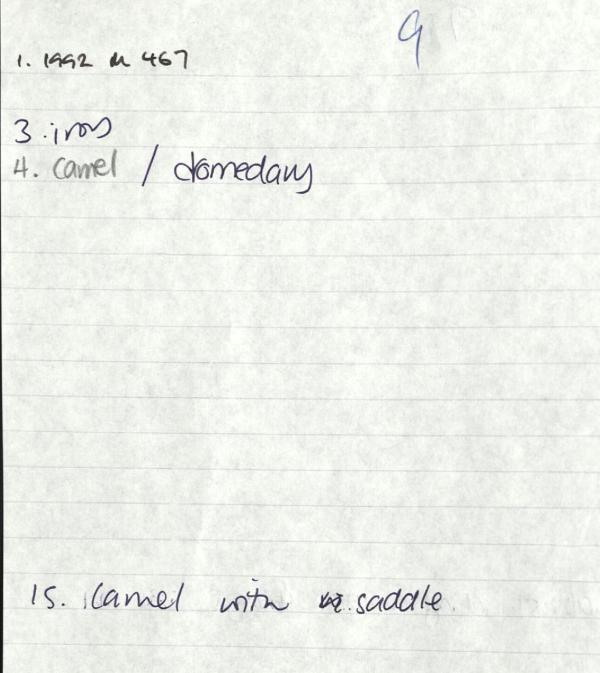 9
1. 1992 M 467
3. iron
4. camel / dromedary
15. camel with saddle